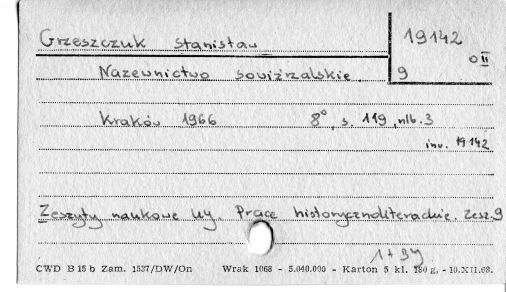 Grzeszczuk Stanisław
19142
O II
9
Nazewnictwo sowiźrzalskie
Kraków 1966 8°, s. 119, nlb. 3
inv. 19142
Zeszyty naukowe UJ. Prace historycznoliterackie. Zesz. 9
CWD B 15 b Zam. 1537/DW/On Wrak 1068 - 5.040.000 - Karton 5 kl. 180 g. - 10.XII.68.